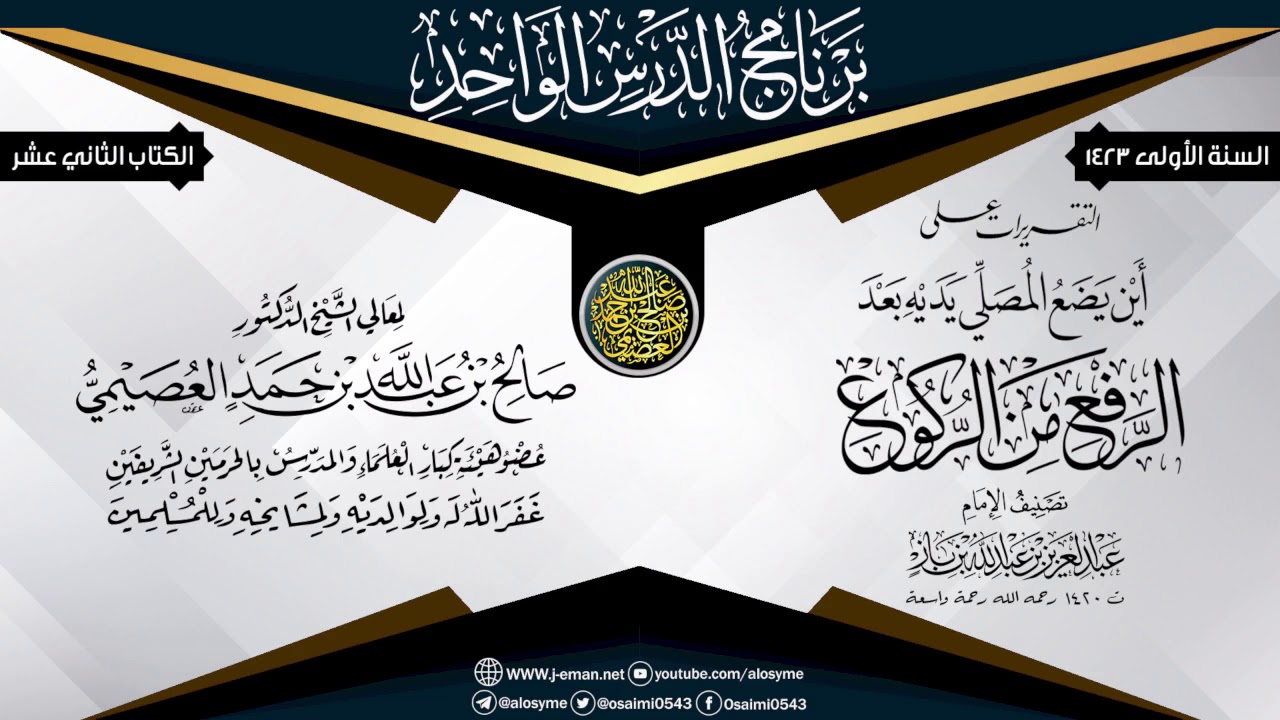 بَرْنَامَجُ الدَّرْسِ الوَاحِدِ
السنة الأولى ١٤٢٣
الكتاب الثاني عشر
التقريرات على
أَيْنَ يَضَعُ المُصَلِّي يَدَيْهِ بَعْدَ
الرَّفْعِ مِنَ الرُّكُوعِ
تصنيفُ الإمامِ
عَبْدِ العَزِيزِ بْنِ عَبْدِ اللَّهِ بْنِ بَازٍ
ت ١٤٢٠ رحمه الله رحمة واسعة
لِمَعَالِي الشَّيْخِ الدُّكْتُورِ
صَالِحُ بْنُ عَبْدِ اللَّهِ بْنِ حَمَدٍ العُصَيْمِيُّ
عُضْوُ هَيْئَةِ كِبَارِ العُلَمَاءِ وَالمُدَرِّسُ بِالحَرَمَيْنِ الشَّرِيفَيْنِ
غَفَرَ اللَّهُ لَهُ وَلِوَالِدَيْهِ وَلِمَشَايِخِهِ وَلِلْمُسْلِمِينَ
صالح بن عبد الله بن حمد العصيمي
WWW.j-eman.net youtube.com/alosyme
@alosyme @osaimi0543 Osaimi0543